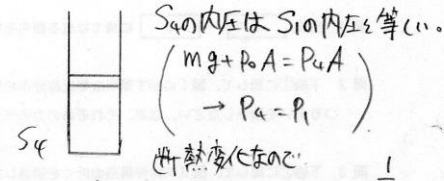 S₄の内圧は S₁の内圧と等しい。
(mg+P₀A=P₄A
→ P₄=P₁)
S₄
断熱変化なので
1